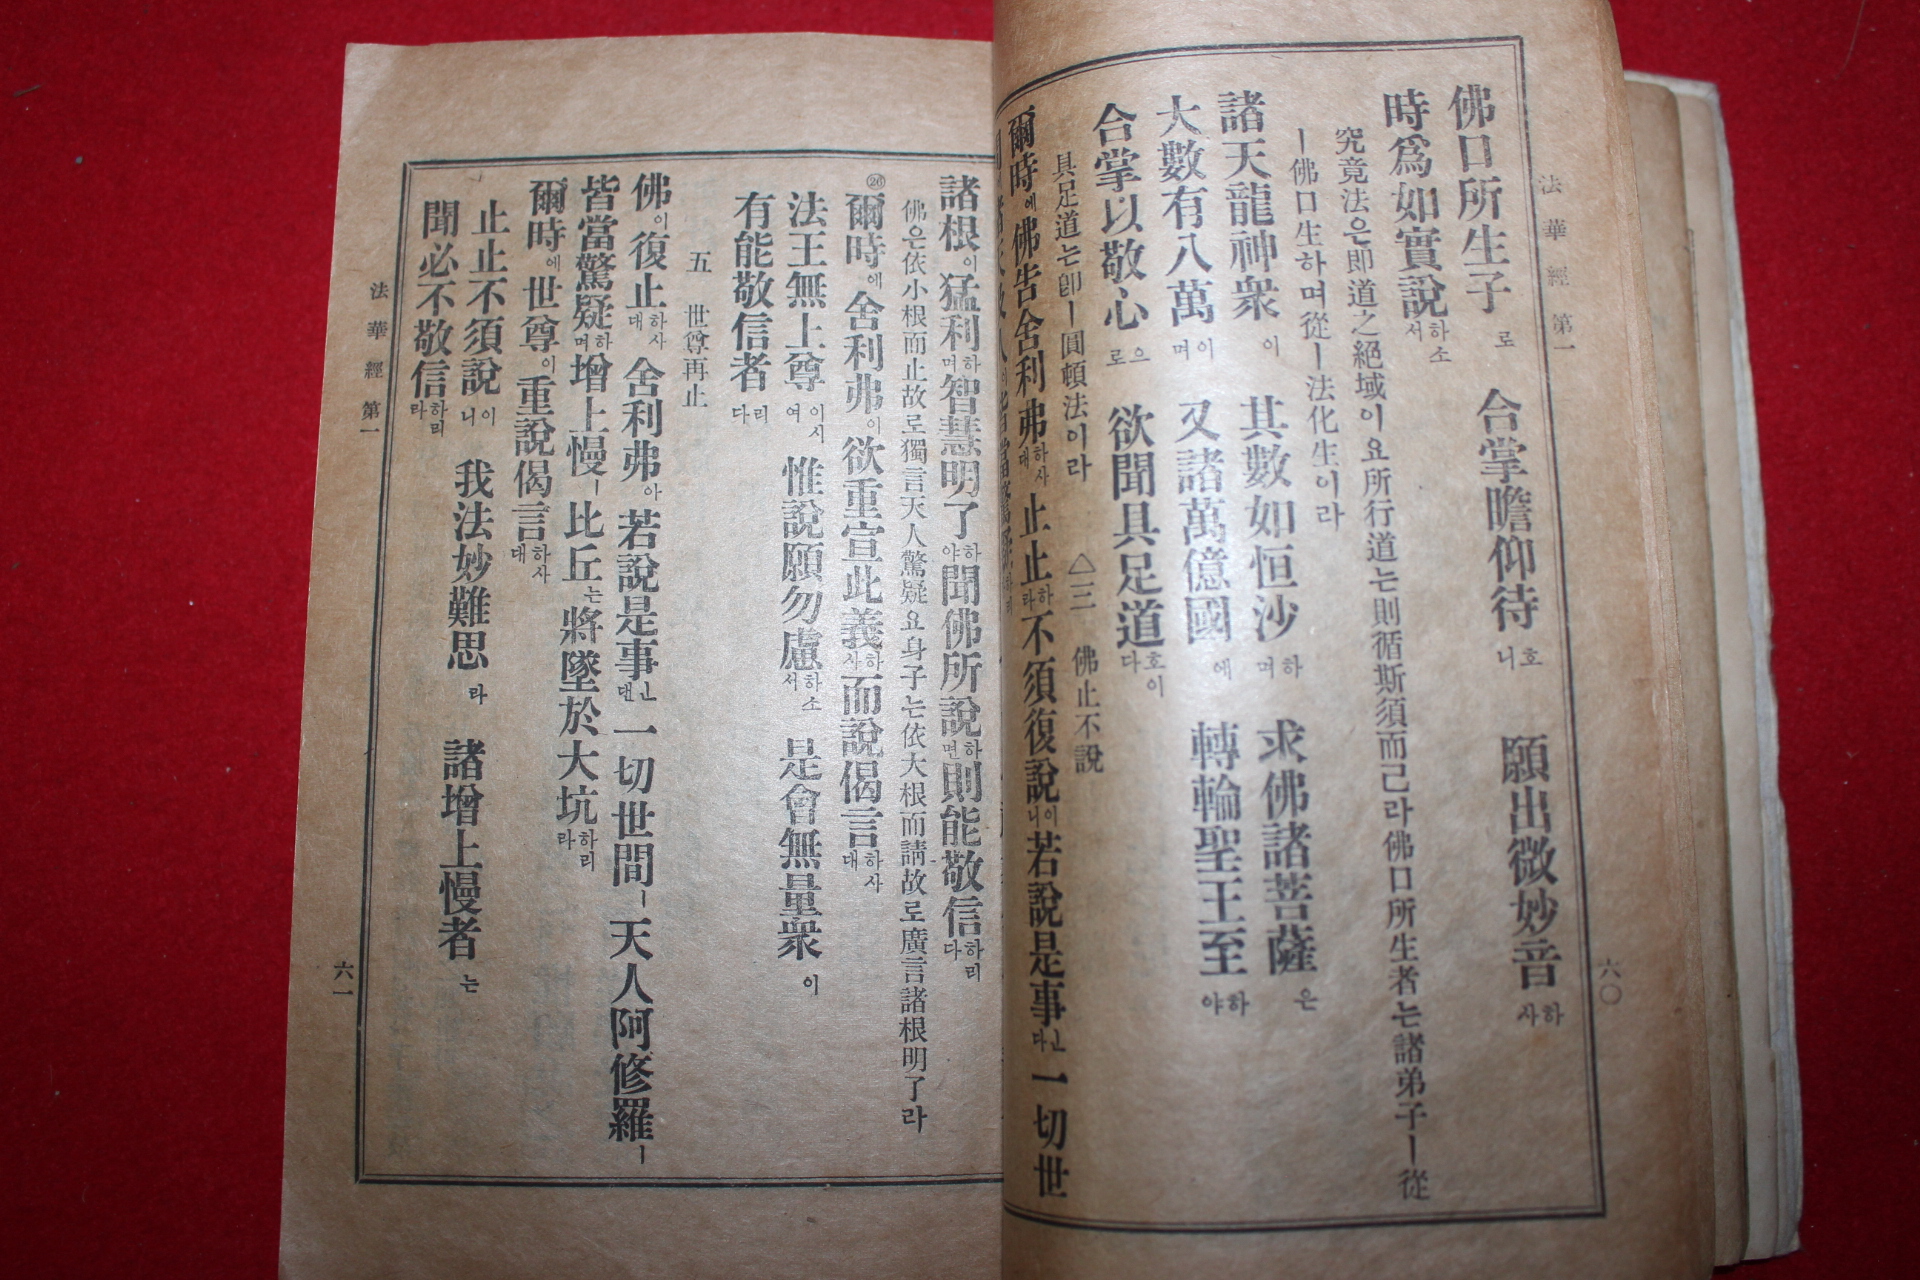 法華經 第一
六〇
佛口所生子로 合掌瞻仰待호니 願出微妙音하사
時爲如實說하소서
究竟法은即道之絕域이요所行道는則循斯須而已라佛口所生者는諸弟子ㅣ從
ㅣ佛口生하며從ㅣ法化生이라
諸天龍神衆이 其數如恒沙하며 求佛諸菩薩은
大數有八萬이며 又諸萬億國에 轉輪聖王至하야
合掌以敬心으로 欲聞具足道호이다
具足道는卽ㅣ圓頓法이라 △三 佛止不說
爾時에佛告舍利弗하사대止止하라不須復說이니若說是事ㄴ다一切世
諸根이猛利하며智慧明了하야聞佛所說하면則能敬信하리다
佛은依小根而止故로獨言天人驚疑요身子는依大根而請故로廣言諸根明了라
㉖爾時에舍利弗이欲重宣此義하사而說偈言하사대
法王無上尊이시여 惟說願勿慮하소서 是會無量衆이
有能敬信者리다
五 世尊再止
佛이復止하사대舍利弗아若說是事ㄴ댄一切世間ㅣ天人阿修羅ㅣ
皆當驚疑하며增上慢ㅣ比丘는將墜於大坑하리라
爾時에世尊이重說偈言하사대
止止不須說이니 我法妙難思라 諸增上慢者는
聞必不敬信하리라
法華經 第一
六一